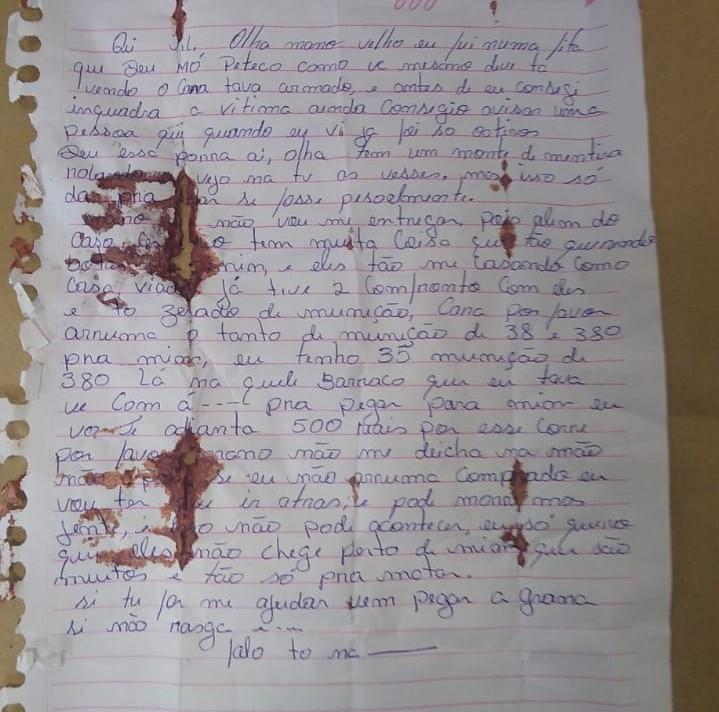 Oi Olha mano velho eu fui numa fita
que deu MÓ Peteco como ve mesmo deve tá
vendo o Cana tava armado, e antes de eu consegi
inquadra a vitima ainda Consegio avisar uma
Pessoa qui quando eu vi ja foi so os tiros
Deu essa porra ai, olha tem um monte de mentira
rolando vejo na tv as vesses, mas isso só
da pra se fosse pesoelmente.
não vou me entregar, pois alem do
Caso tem muita Coisa que tão querendo
mim, e eles tão me Casando como
Casa viado já tive 2 Comfronto Com eles
e to zerado de munição, Cana Por favor
arruma o tanto de munição de 38 e 380
pra mior, eu tenho 35 munição de
380 Lá na quele Barraco que eu tava
ve Com á---- pra pegar para mior eu
vo te adianta 500 Mais por esse Corre
por favor mano não me deicha na mão
se eu não arruma Comprado eu
vou ter ir atras, e pode morre mas
Jente, e não pode acontecer, eu só queiro
que eles não chege perto de mior que são
muitos e tão só pra matar.
si tu for me ajudar vem pegar a grana
si não rasga e...
falo to na ———